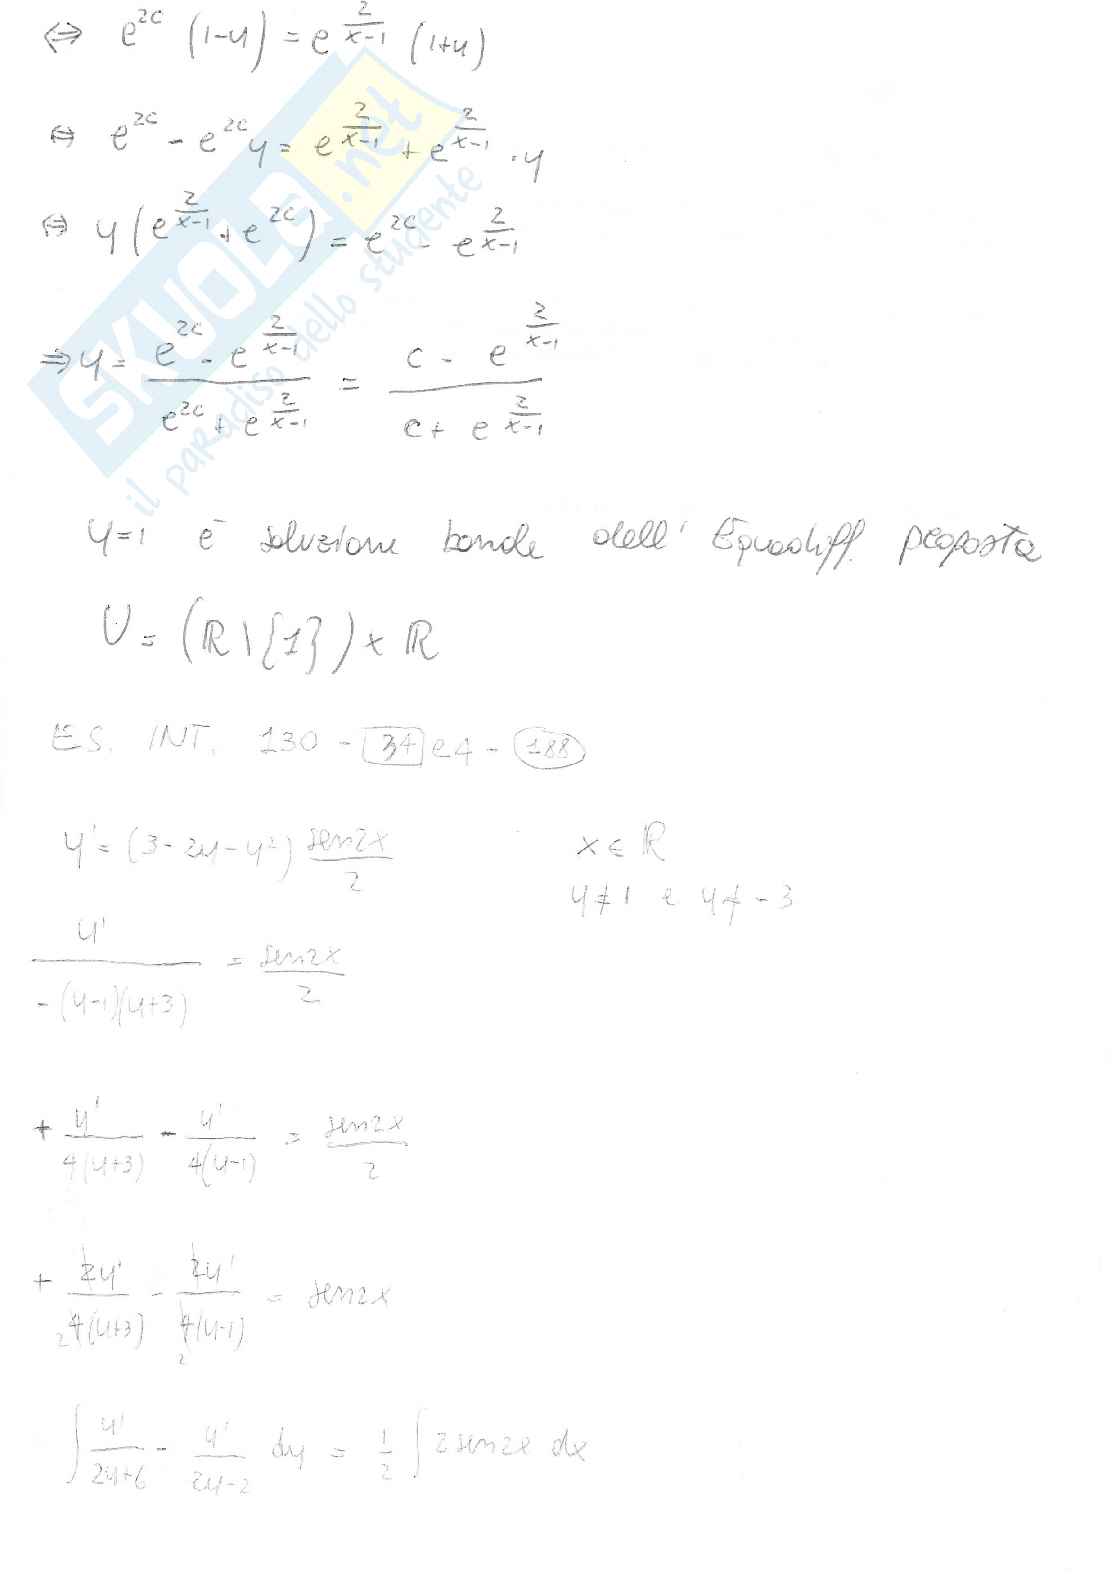 ⇔ e^{2c} (1-y) = e^{\frac{2}{x-1}} (1+y)
⇔ e^{2c} - e^{2c} y = e^{\frac{2}{x-1}} + e^{\frac{2}{x-1}} · y
⇔ y (e^{\frac{2}{x-1}} + e^{2c}) = e^{2c} - e^{\frac{2}{x-1}}
⇒ y = \frac{e^{2c} - e^{\frac{2}{x-1}}}{e^{2c} + e^{\frac{2}{x-1}}} = \frac{c - e^{\frac{2}{x-1}}}{c + e^{\frac{2}{x-1}}}
SKUOLA.net
il paradiso dello studente
y=1 è soluzione banale dell' Equadiff. proposta
U = (ℝ \ {1}) × ℝ
ES. INT. 130 - 34 e 4 - 188
y' = (3-2y-y²) \frac{sen2x}{2} x ∈ ℝ
y≠1 e y≠-3
\frac{y'}{-(y-1)(y+3)} = \frac{sen2x}{2}
+ \frac{y'}{4(y+3)} - \frac{y'}{4(y-1)} = \frac{sen2x}{2}
+ \frac{2y'}{4(y+3)} - \frac{2y'}{4(y-1)} = sen2x
2 2
∫ \frac{y'}{2y+6} - \frac{y'}{2y-2} dy = \frac{1}{2} ∫ 2sen2x dx